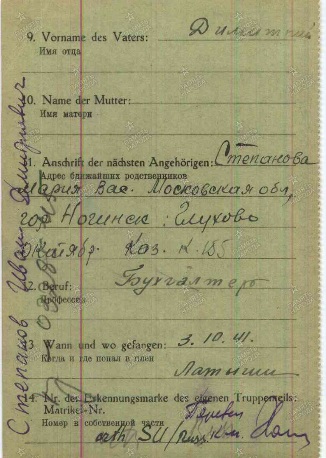 9. Vorname des Vaters: Димитрий
Имя отца
10. Name der Mutter:
Имя матери
11. Anschrift der nächsten Angehörigen: Степанова
Адрес ближайших родственников
Мария Вас. Московская обл,
гор Ногинск: Глухово
Октябр. Каз. к-185
12. Beruf: Бухгалтер
Профессия
13 Wann und wo gefangen: 3.10.41.
Когда и где попал в плен
Латыши
14. Nr. der Erkennungsmarke des eigenen Truppenteils:
Matrikel-Nr.
Номер в собственной части
Степанов Иван Димитриевич